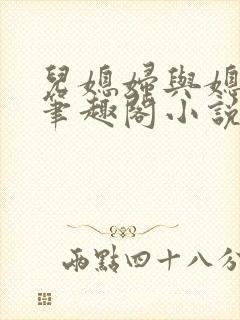 兒媳婦與媳
筆趣閣小說
兩點四十八分